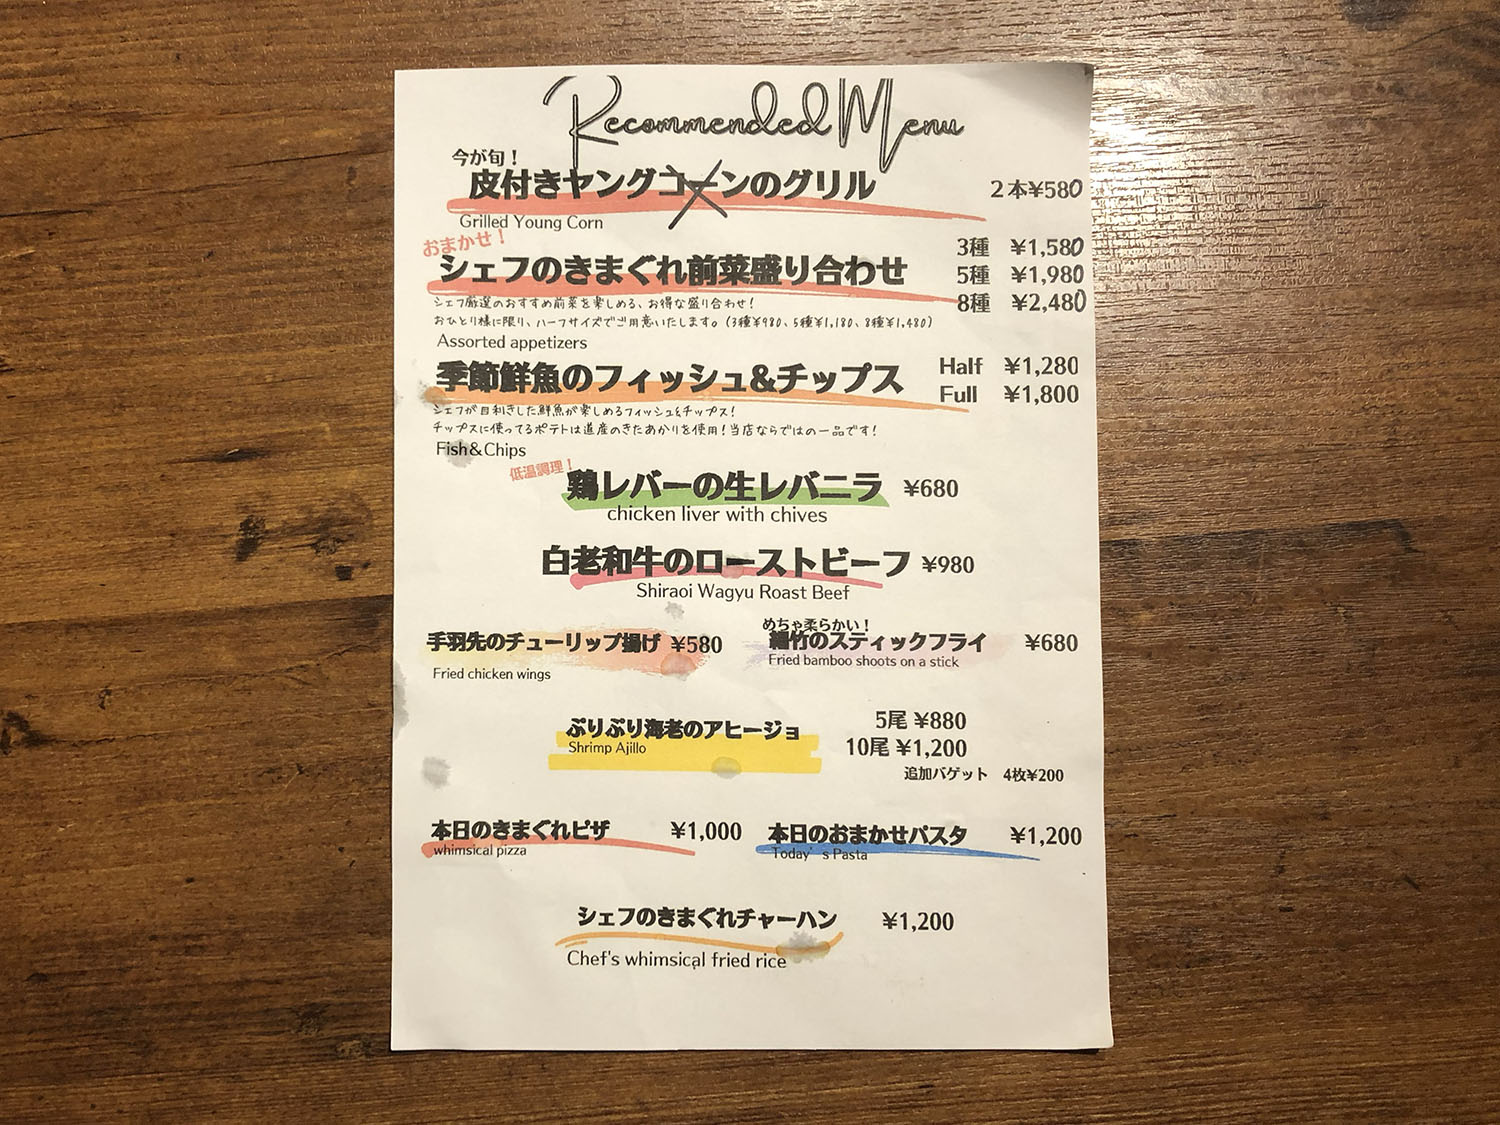 Recommended Menu
今が旬！
皮付きヤングコーンのグリル 2本¥580
Grilled Young Corn
おまかせ！
シェフのきまぐれ前菜盛り合わせ
3種 ¥1,580
5種 ¥1,980
8種 ¥2,480
シェフ厳選のおすすめ前菜を楽しめる、お得な盛り合わせ！
おひとり様に限り、ハーフサイズでご用意いたします。（3種¥980、5種¥1,180、8種¥1,480）
Assorted appetizers
季節鮮魚のフィッシュ&チップス
Half ¥1,280
Full ¥1,800
シェフが目利きした鮮魚が楽しめるフィッシュ&チップス！
チップスに使ってるポテトは道産のきたあかりを使用！当店ならではの一品です！
Fish&Chips
低温調理！
鶏レバーの生レバニラ ¥680
chicken liver with chives
白老和牛のローストビーフ ¥980
Shiraoi Wagyu Roast Beef
手羽先のチューリップ揚げ ¥580
Fried chicken wings
めちゃ柔らかい！
細竹のスティックフライ ¥680
Fried bamboo shoots on a stick
ぷりぷり海老のアヒージョ
Shrimp Ajillo
5尾 ¥880
10尾 ¥1,200
追加バゲット 4枚¥200
本日のきまぐれピザ ¥1,000
whimsical pizza
本日のおまかせパスタ ¥1,200
Today's Pasta
シェフのきまぐれチャーハン ¥1,200
Chef's whimsical fried rice